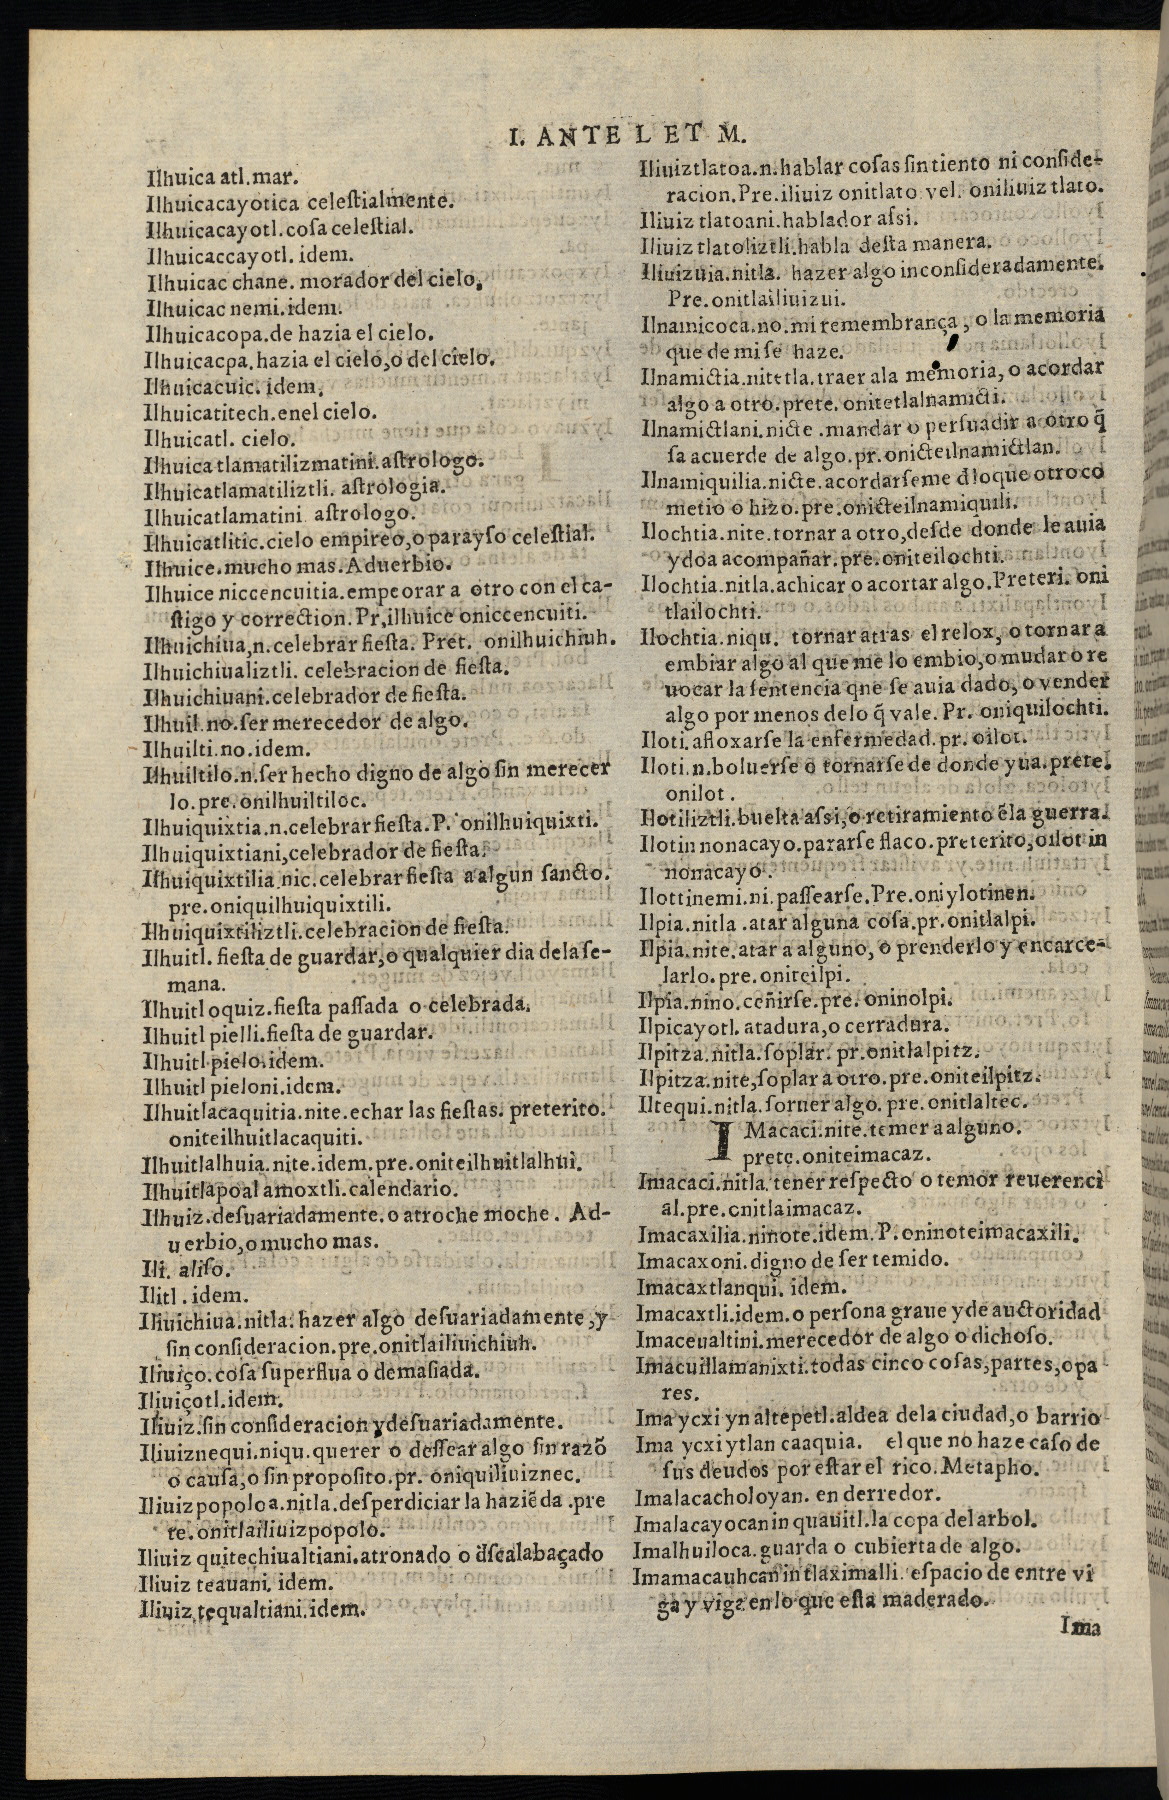 I. ANTE L ET M.
Ilhuica atl.mar.
Ilhuicacayotica celeſtialmente.
Ilhuicacayotl.coſa celeſtial.
Ilhuicaccayotl.idem.
Ilhuicac chane. morador del cielo.
Ilhuicac nemi.idem.
Ilhuicacopa.de hazia el cielo.
Ilhuicacpa.hazia el cielo,o del cielo.
Ilhuicacuic.idem.
Ilhuicatitech.enel cielo.
Ilhuicatl. cielo.
Ilhuica tlamatilizmatini.aſtrologo.
Ilhuicatlamatiliztli. aſtrologia.
Ilhuicatlamatini aſtrologo.
Ilhuicatlitic.cielo empireo,o parayſo celeſtial.
Ilhuice.mucho mas.Aduerbio.
Ilhuice niccencuitia.empeorar a otro con el ca-
ſtigo y correction. Pr,ilhuice oniccencuiti.
Ilhuichiua,n.celebrar fieſta. Pret. onilhuichiuh.
Ilhuichiualiztli. celebracion de fieſta.
Ilhuichiuani.celebrador de fieſta.
Ilhuil.no.ſer merecedor de algo.
Ilhuilti.no.idem.
Ilhuiltilo.n.ſer hecho digno de algo ſin merecer
lo.pre.onilhuiltiloc.
Ilhuiquixtia.n.celebrar fieſta.P. onilhuiquixti.
Ilhuiquixtiani,celebrador de fieſta.
Ilhuiquixtilia.nic.celebrar fieſta a algun ſancto.
pre.oniquilhuiquixtili.
Ilhuiquixtiliztli.celebracion de fieſta.
Ilhuitl. fieſta de guardar,o qualquier dia dela ſe-
mana.
Ilhuitl oquiz.fieſta paſſada o celebrada.
Ilhuitl pielli.fieſta de guardar.
Ilhuitl pielo.idem.
Ilhuitl pieloni.idem.
Ilhuitlacaquitia.nite.echar las fieſtas. preterito.
oniteilhuitlacaquiti.
Ilhuitlalhuia.nite.idem.pre.oniteilhuitlalhui.
Ilhuitlapoal amoxtli.calendario.
Ilhuiz.deſuariadamente.o atroche moche. Ad-
uerbio,o mucho mas.
Ili. aliſo.
Ilitl.idem.
Iliuichiua.nitla.hazer algo deſuariadamente,y
ſin conſideracion.pre.onitlailiuichiuh.
Iliuiço.coſa ſuperflua o demaſiada.
Iliuiçotl.idem.
Iliuiz.ſin conſideracion y deſuariadamente.
Iliuiznequi.niqu.querer o deſſear algo ſin razõ
o cauſa,o ſin propoſito.pr. oniquiliuiznec.
Iliuizpopoloa.nitla.deſperdiciar la haziẽda.pre
te.onitlailiuizpopolo.
Iliuiz quitechiualtiani.atronado o dſcalabaçado
Iliuiz teauani. idem.
Iliuiz tequaltiani.idem.
Iliuiztlatoa.n.hablar coſas ſin tiento ni conſide-
racion.Pre.iliuiz onitlato vel. oniliuiz tlato.
Iliuiz tlatoani.hablador aſsi.
Iliuiz tlatoliztli.habla deſta manera.
Iliuizuia.nitla. hazer algo inconſideradamente.
Pre.onitlailiuizui.
Ilnamicoca.no.mi remembrança, o la memoria
que de mi ſe haze.
Ilnamictia.nitetla.traer ala memoria, o acordar
algo a otro.prete. onitetlalnamicti.
Ilnamictlani.nicte.mandar o perſuadir a otro q̃
ſa acuerde de algo.pr.onicteilnamictlan.
Ilnamiquilia.nicte.acordarſeme dloque otro co
metio o hizo.pre.onicteilnamiquili.
Ilochtia.nite.tornar a otro,deſde donde le auia
ydo a acompañar.pre.oniteilochti.
Ilochtia.nitla.achicar o acortar algo.Preteri. oni
tlailochti.
Ilochtia.niqu. tornar atras el relox, o tornar a
embiar algo al que me lo embio,o mudar o re
uocar la ſentencia qne ſe auia dado,o vender
algo por menos delo q̃ vale. Pr. oniquilochti.
Iloti.afloxarſe la enfermedad.pr. oilot.
Iloti.n.boluerſe o tornarſe de donde yua.prete.
onilot.
Ilotiliztli.buelta aſsi,o retiramiento ẽla guerra.
Ilotin nonacayo.pararſe flaco.preterito,oilot in
nonacayo.
Ilottinemi.ni.paſſearſe.Pre.oniylotinen.
Ilpia.nitla.atar alguna coſa.pr.onitlalpi.
Ilpia.nite.atar a alguno, o prenderlo y encarce-
larlo.pre.oniteilpi.
Ilpia.nino.ceñirſe.pre. oninolpi.
Ilpicayotl.atadura,o cerradura.
Ilpitza.nitla.ſoplar. pr.onitlalpitz.
Ilpitza.nite,ſoplar a otro.pre.oniteilpitz.
Iltequi.nitla.ſoruer algo.pre.onitlaltec.
IMacaci.nite.temer a alguno.
prete.oniteimacaz.
Imacaci.nitla.tener reſpecto o temor reuerenci
al.pre.onitlaimacaz.
Imacaxilia.ninote.idem.P.oninoteimacaxili.
Imacaxoni.digno de ſer temido.
Imacaxtlanqui. idem.
Imacaxtli.idem.o perſona graue y de auctoridad
Imaceualtini.merecedor de algo o dichoſo.
Imacuillamanixti.todas cinco coſas,partes,o pa
res.
Ima ycxi yn altepetl.aldea dela ciudad,o barrio
Ima ycxi ytlan caaquia. el que no haze caſo de
ſus deudos por eſtar el rico.Metapho.
Imalacacholoyan. en derredor.
Imalacayocan in quauitl.la copa del arbol.
Imalhuiloca.guarda o cubierta de algo.
Imamacauhcan in tlaximalli. eſpacio de entre vi
ga y viga en lo que eſta maderado.
Ima